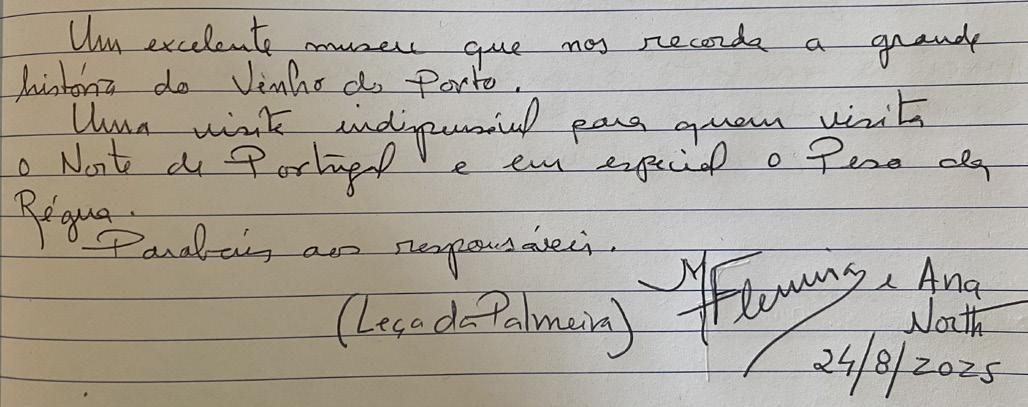 Um excelente museu que nos recorda a grande
história do Vinho do Porto.
Uma visita indispensável para quem visita
o Norte de Portugal e em especial o Peso da
Régua.
Parabéns aos responsáveis.
(Leça da Palmeira) M Fleming e Ana
North
24/8/2025